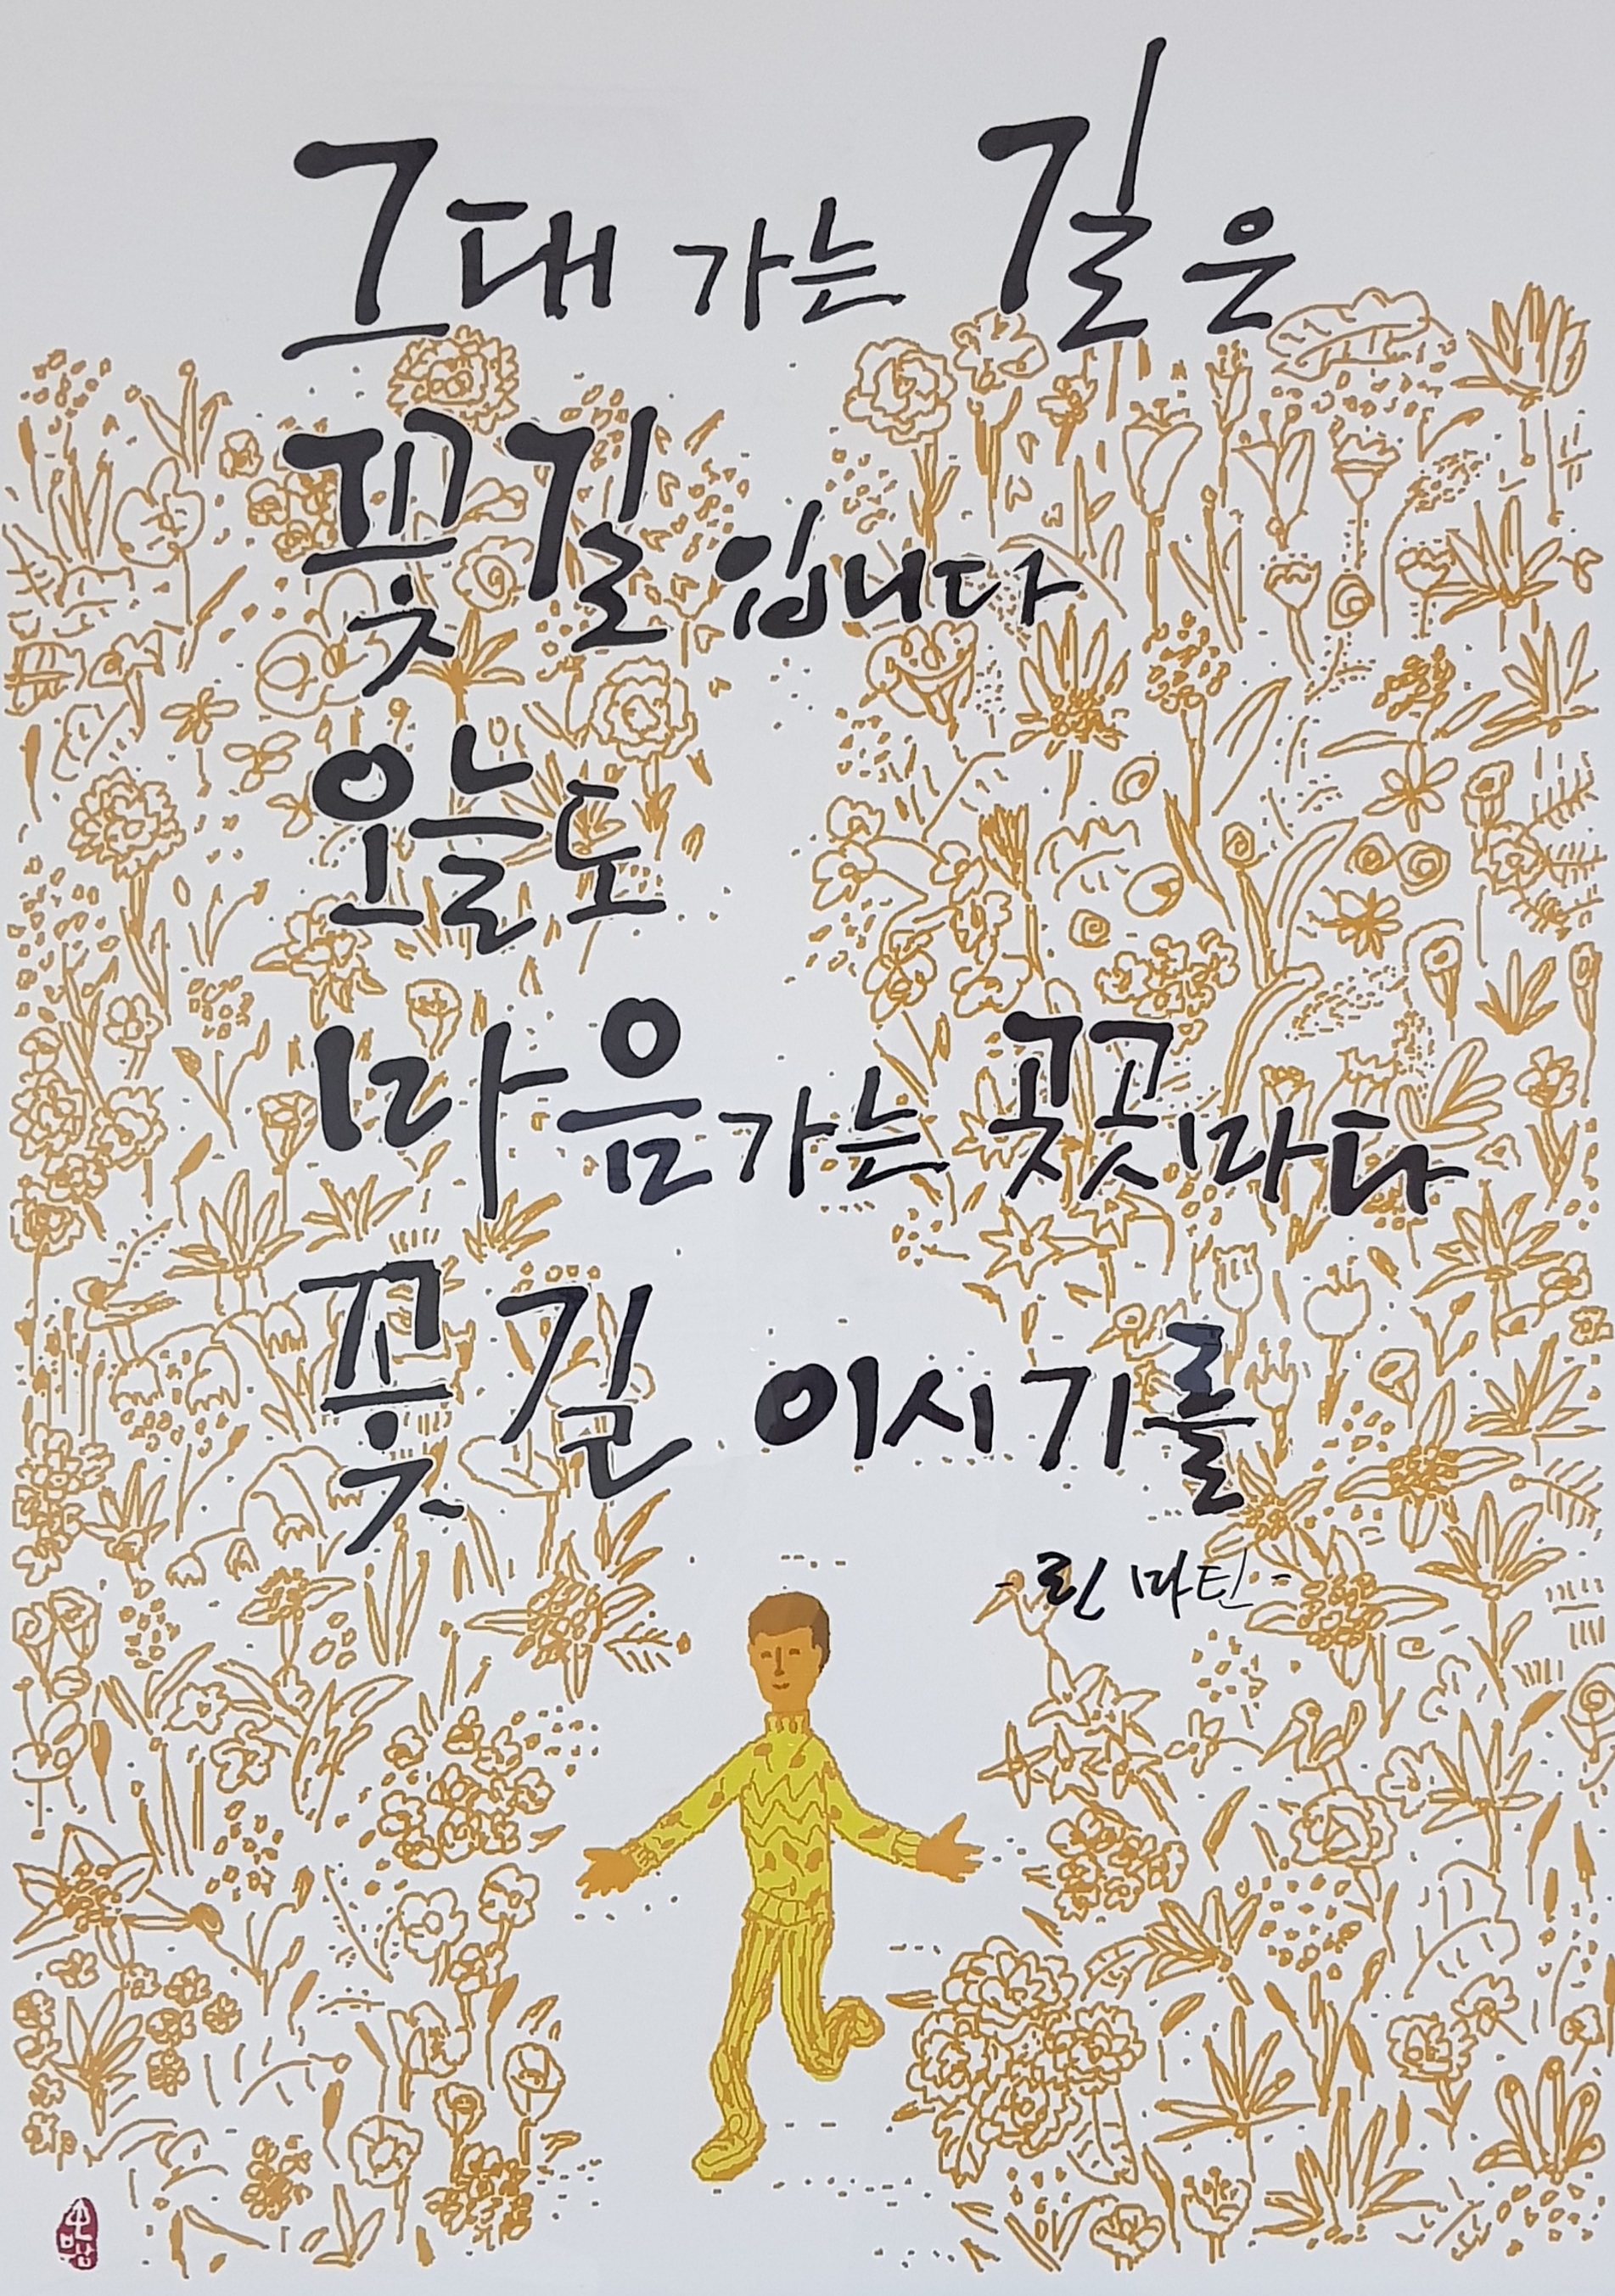 그대 가는 길은
꽃길입니다
오늘도
마음가는 곳곳마다
꽃길 이시기를
-린 마틴-